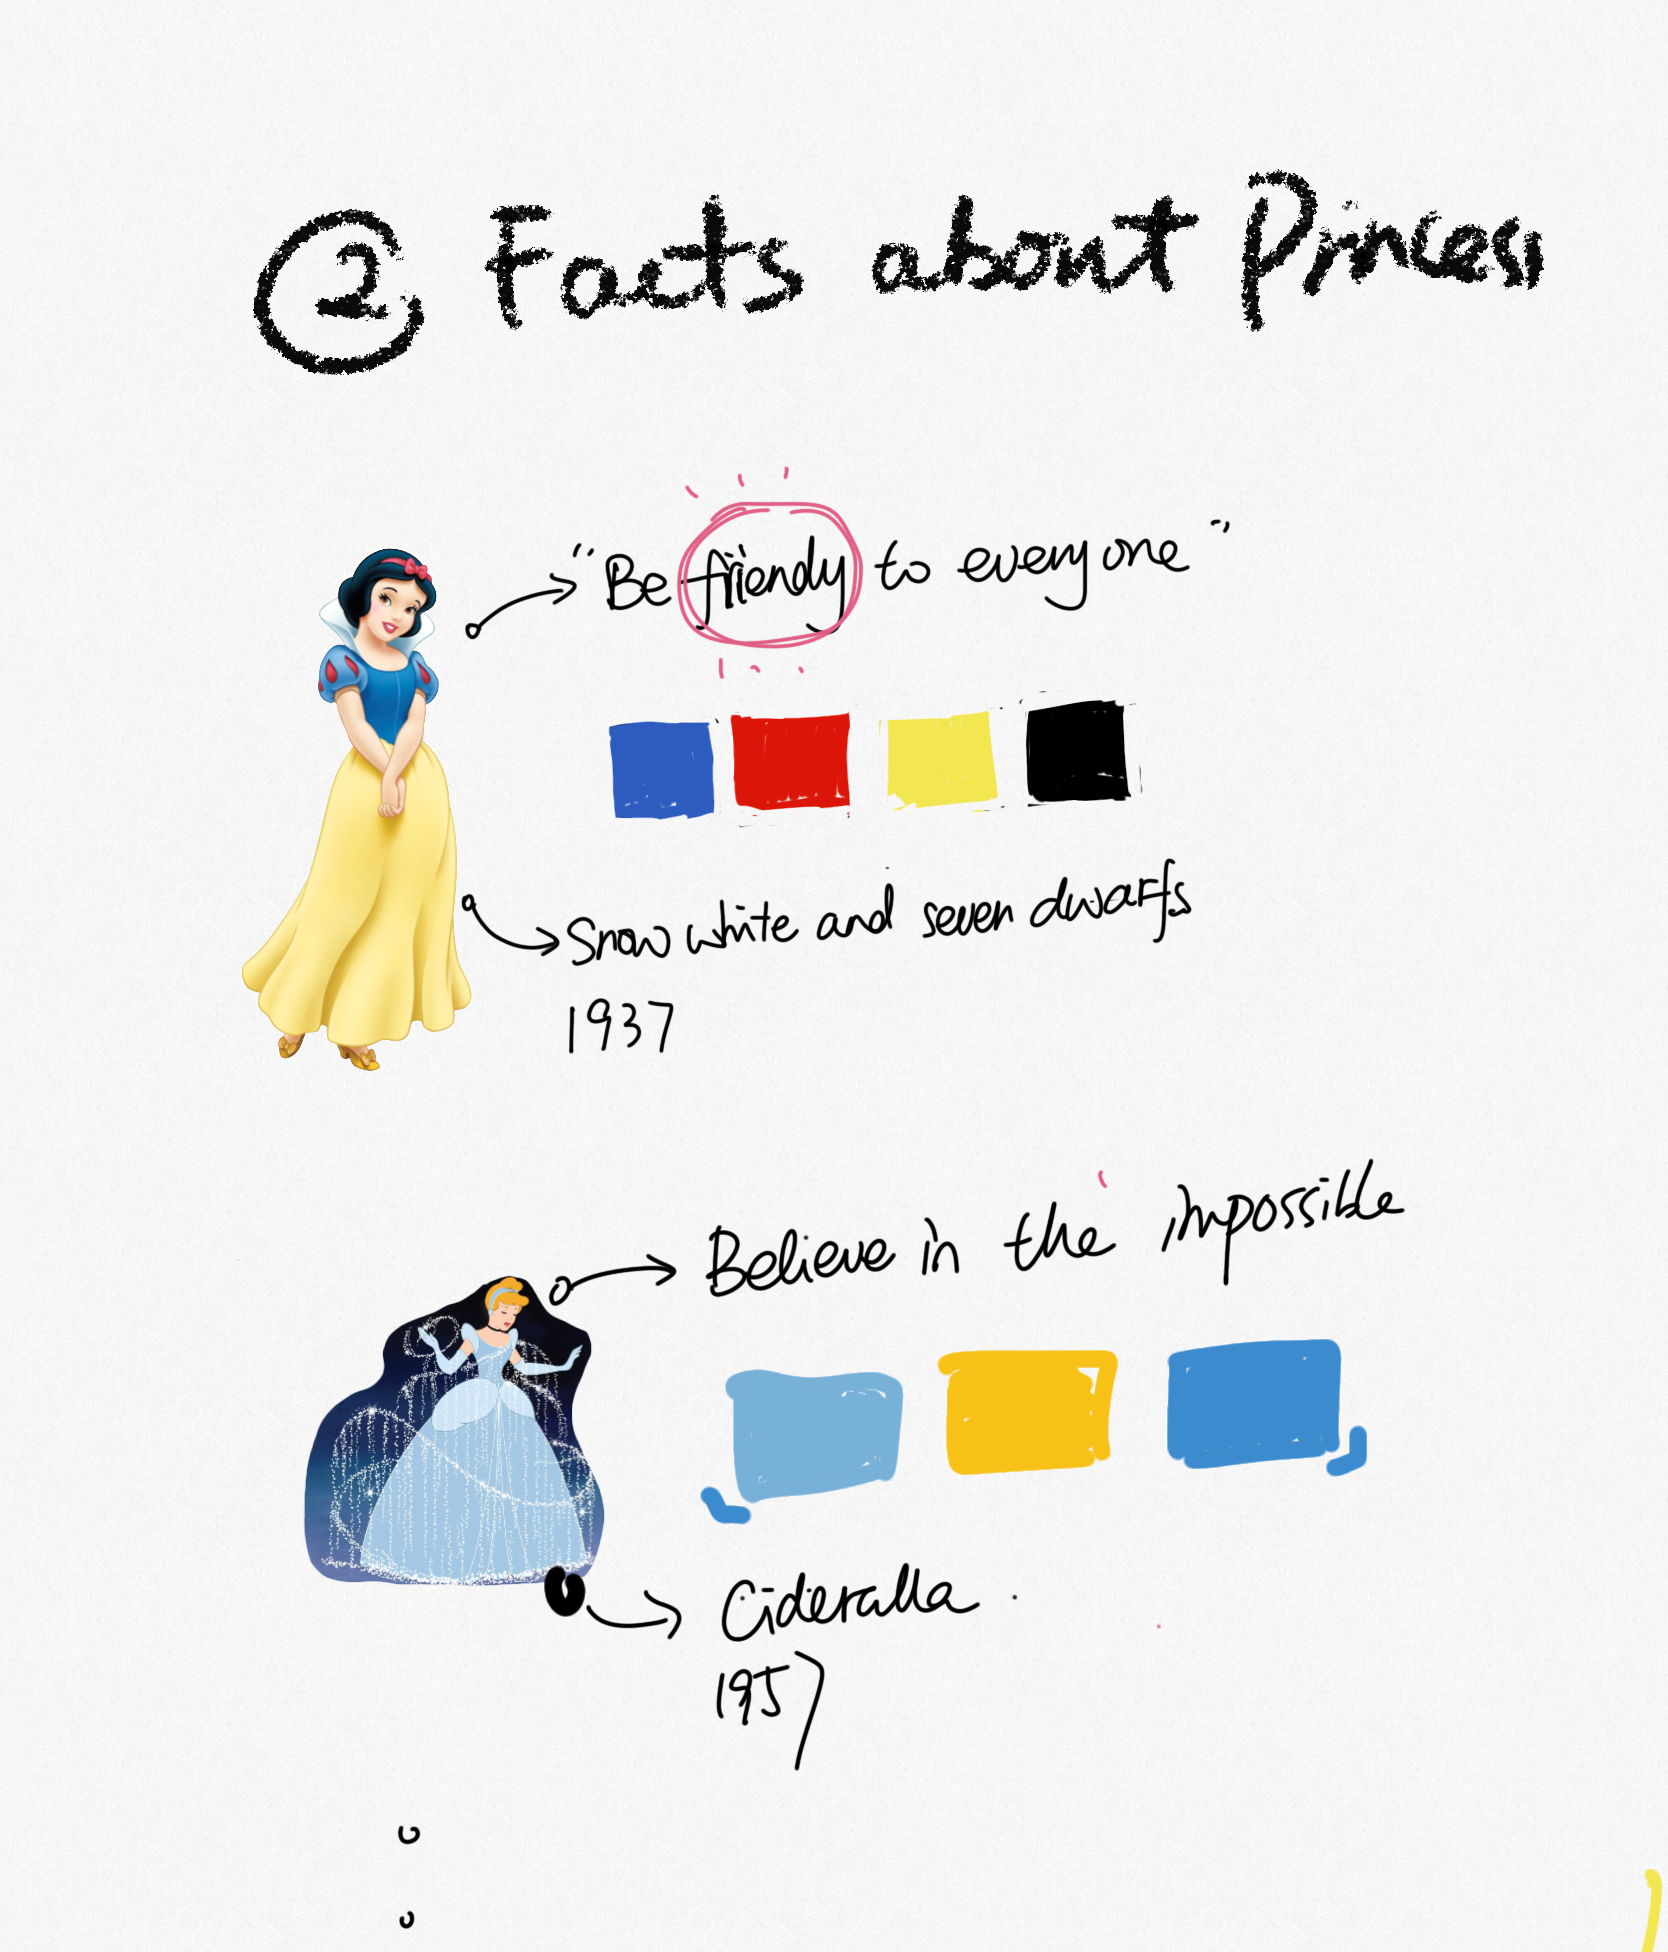 ② Facts about Princess
"Be friendy to everyone"
Snow white and seven dwarfs
1937
Believe in the impossible
Cideralla
1957